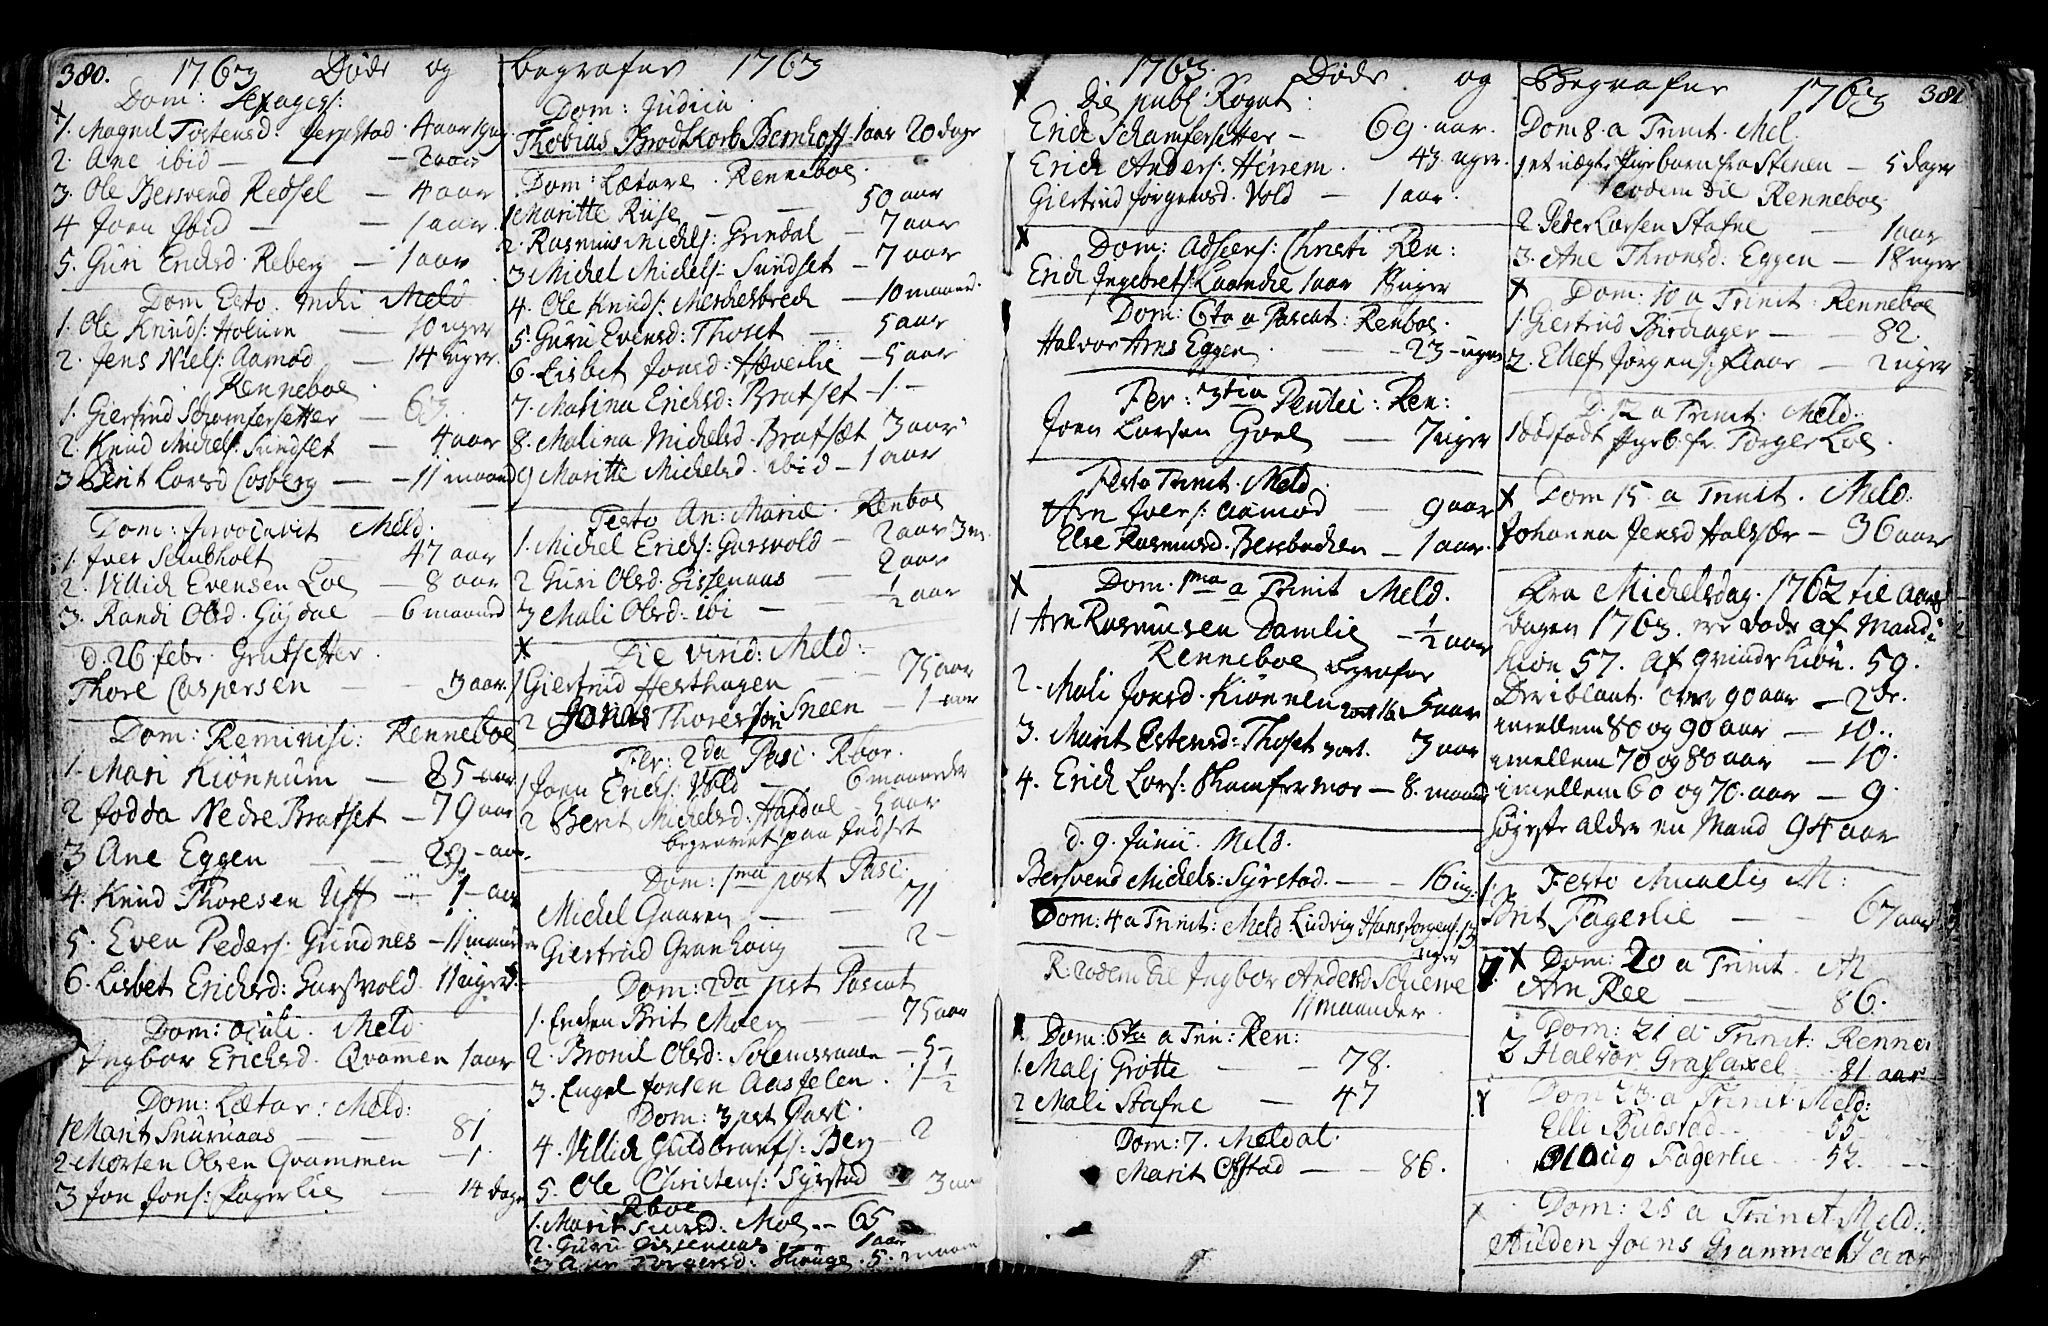 380. 1763 Døde og
Dom: Sexages:
1. Magnil Tostensd. Jerpstad. 4 aar
2. Ane ibid — 2 aar
3. Ole Bersvend Redsel — 4 aar
4 Joen Ibid — 1 aar
5. Guri Ericksd. Reberg — 1 aar
Dom Esto. mihi Meld
1. Ole Knuds: Holum — 10 uger
2. Jens Niels: Aamod — 14 uger.
Renneboe
1. Giertrud Schamfersetter — 63.
2. Knud Michels. Sundset — 4 aar
3 Berit Larsd Cosberg — 11 maaned
Dom: Invocavit Meld.
1. Iver Scubholt — 47 aar
2. Villich Evensen Loe — 8 aar
3. Randi Olsd. — 6 maaned
d. 26 febr. Grutsetter.
Thore Caspersen — 3 aar.
Dom: Reminisc: Renneboe
1. Mari Kiönnum — 85 aar
2 Jodda Nedre Bratset — 79 aar
3 Ane Eggen — 29 aar.
4. Knud Thoresen Uff — 1 aar
5. Even Peders. Gundnes — 11 maaneder
6. Lisbet Ericksd: Garsvold. 11 uger.
Dom: oculi. Meld
Ingbor Ericksd. Qvamen 1 aar
Dom: Lætar: Meld:
1 Marit Snuruaas — 81
2 Morten Olsen Qvammen — 1.
3 Jon Jons: Fagerlie — 14 dage
begrafne 1763
Dom: Judica.
Thobias Brodtkorb Bernhoff. 1 aar 20 dage
Dom: Lætare. Renneboe.
1 Maritte Riise — 50 aar
2. Rasmus Michels: Grindal — 7 aar
3 Michel Michels: Sundset — 7 aar
4. Ole Knuds: Merchesbrech — 10 maaned.
5. Guru Evensd: Thoset — 5 aar
6. Lisbet Jonsd: Hæverlie — 5 aar
7. Malina Ericksd: Bratset — 1 —
8. Malina Michelsd. Bratsæt 3 aar
9 Maritte Michelsd. ibid — 1 aar
Festo An: Mariæ. Renboe
1. Michel Ericks: Garsvold — 2 aar 3 m.
2 Guri Olsd. Gissenaas — 2 aar
3 Mali Olsd: ibi — ½ aar
Die virid: Meld:
1 Giertrud Herthagen — 75 aar
2 Jonas Thoresen Sneen — 1 aar
Fer: 2da Pasc. Rboe.
1 Joen Ericks: Vold — 6 maaneder
2 Berit Michelsd: Hafdal — 5 aar
begravet paa Indset
Dom: 1ma post Pasc:
Michel Gaaren — 71
Giertrud Granhoug — 2 —
Dom: 2da post Pascat
1. Enchen Brit Moen — 75 aar
2. Bronil Olsd: Solemsvaale — 5 —
3. Engel Jonsen Aasselen. 1 ½
Dom: 3 post Pasc:
4. Villich Guldbrands: Berg — 2
5. Ole Christens: Syrstad — 3 aar
Rboe
1. Marit Siursd: Moe — 65
2. Guru Gissenaas — 1 aar
3 Ane Torgersd: Skouge. 5. maan
1763. Døde og
Die publ: Rogat:
Erich Schamfersetter — 69. aar.
Erich Anders: Hinem. 43. uger.
Giertrud Jorgensd. Vold — 1 aar.
Dom: Adscens: Christi Ren:
Erich Ingebrets: Laandie 1 aar 18 uger
Dom: 6ta a Pascat: Renboe.
Halvor Arns Eggen — 23 — uger
Fer: 3tia Pentec: Ren:
Joen Larsen Goel — 7 uger
Festo Trinit. Meld.
Arn Joers: aamod — 9 aar
Else Rasmusd. Bersbachen — 1 aar.
Dom. 1ma a Trinit Meld.
1 Arn Rasmusen Damlie — ½ aar
Renneboe begrafne
2. Mali Jonsd. Kiönnen 5 aar
3. Marit Estensd: Thoset 3 aar
4. Erich Lars: Skamfermoe — 8. maaned
d. 9. Junii. Meld.
Bersvend Michels: Syrstad. — 16 ug:
Dom: 4 a Trinit: Meld Ludvig Hans Jorgens: 13 uger
R: eodem die Ingbor Andersd Schierve
11 maaneder.
Dom: 6te a Trin: Ren:
1. Mali Grotte — 78.
2 Mali Stafne — 47
Dom: 7. Meldal.
Marit Ofstad — 86.
Begrafne 1763 381
Dom 8. a Trinit. Mel.
1 et uægte Pigebarn fra Stenen — 5 dager
eodem die Renneboe.
2 Peder Larsen Stafne — 1 aar
3. Ane Thronsd: Eggen — 18 uger
Dom: 10 a Trinit. Renneboe
1. Giertrud Birchager — 82.
2. Ellef Jorgens: Flaar — 2 uger
D. 12 a Trinit. Meld:
1 dødfødt Pigeb. fr. Torger Loe.
Dom 15. a Trinit. Meld.
Johanna Jensd Halsør — 36 aar
Fra Michelsdag. 1762 til aars
dagen 1763. ere døde af Mand-
kiön 57. Af qvindekiön. 59.
Deriblant. over 90 aar — 2de.
imellem 80 og 90 aar — 10.
imellem 70 og 80 aar — 10.
imellem 60 og 70. aar — 9.
høyeste alder en Mand 94 aar
1. Festo Michaelis M:
Brit Fagerlie — 67 aar
Dom: 20 a Trinit. M
Arn Ree — 86.
Dom: 21 a Trinit: Renne
2 Halvor Grafaxel — 81 aar
Dom 23. a Trinit Meld:
Elli Buostad — 55
Olaug Fagerlie — 52.
Dom: 25 a Trinit. Meld:
Auden Joens Granmoe 17 aar